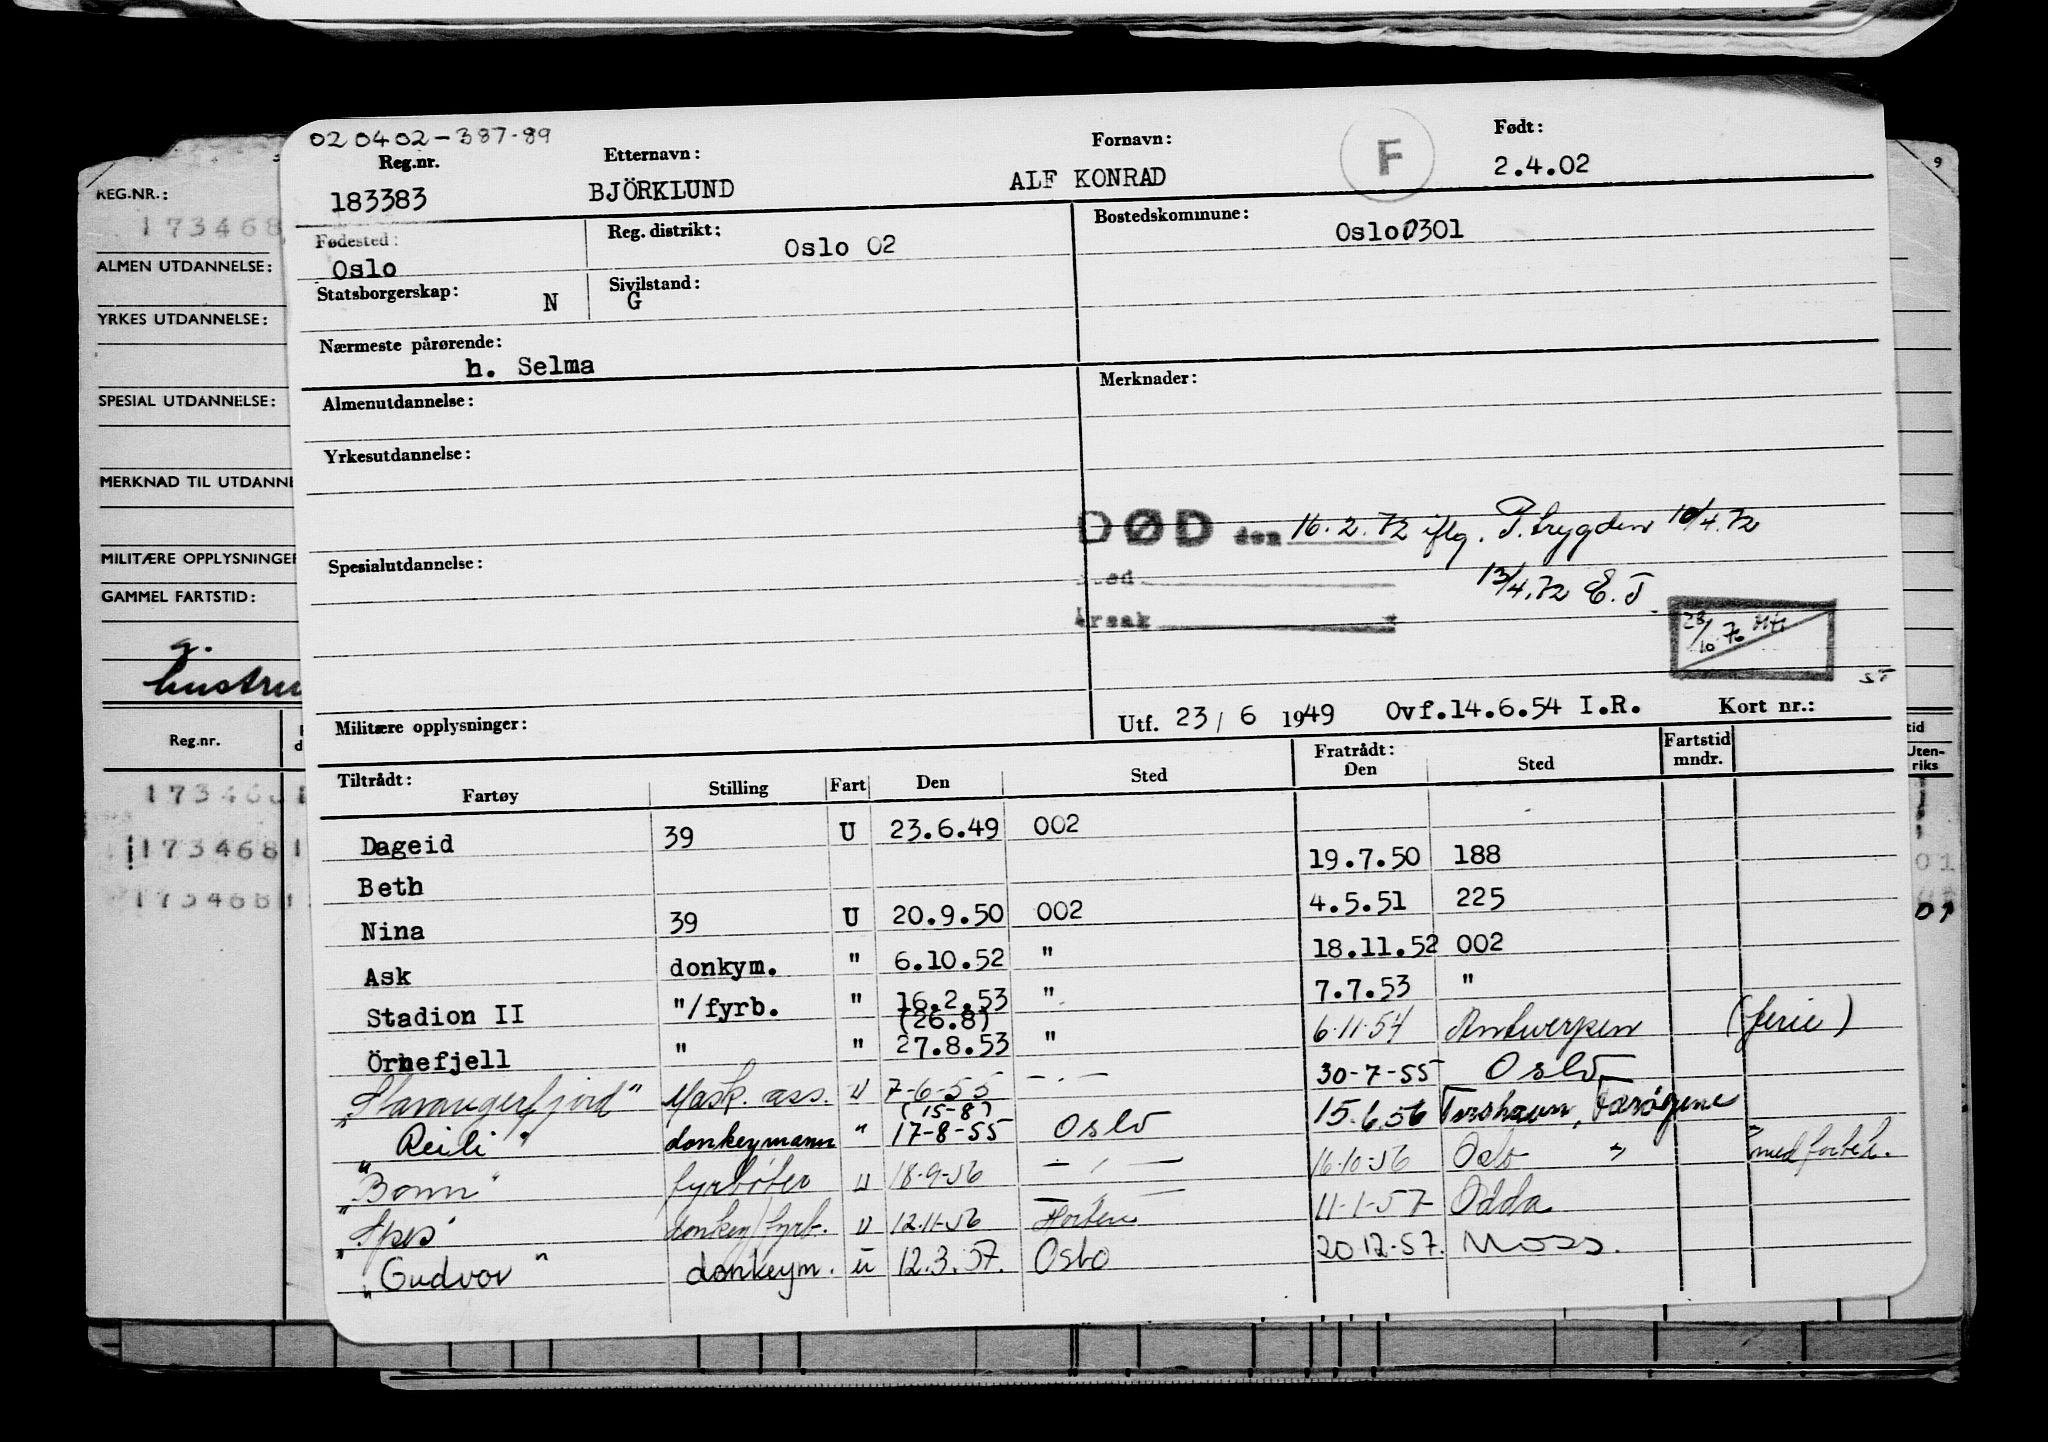 020402-387-89
Reg.nr. Etternavn: Fornavn: F Født:
183383 BJÖRKLUND ALF KONRAD 2.4.02
Fødested: Reg. distrikt: Bostedskommune:
Oslo Oslo 02 Oslo 0301
Statsborgerskap: N Sivilstand: G
Nærmeste pårørende:
h. Selma
Almenutdannelse: Merknader:
Yrkesutdannelse:
DØD den 16.2.72 iflg. P.trygden 10/4.72
Spesialutdannelse: sted 13/4.72 E.T.
Årsak
23/10 76
ST
Militære opplysninger: Utf. 23/6 1949 Ovf.14.6.54 I.R. Kort nr.:
Tiltrådt: Fratrådt: Fartstid
Fartøy Stilling Fart Den Sted Den Sted mndr.
Dageid 39 U 23.6.49 002 19.7.50 188
Beth 4.5.51 225
Nina 39 U 20.9.50 002 18.11.52 002
Ask donkym. " 6.10.52 " 7.7.53 "
Stadion II "/fyrb. " 16.2.53 " 6-11-54 Antwerpen (ferie)
(26.8)
Örnefjell " " 27.8.53 " 30-7-55 Oslo
"Stavangerfjord" Mask. ass. U 7-6-55 -.- 15.6.56 Torshavn, Færøyene
(15-8)
"Reili" donkeymann " 17-8-55 Oslo 16-10-56 Oslo " med forbeh.
"Bonn" fyrbøter U 18-9-56 -,- 11-1-57 Odda
"Spes" donkey/fyrb. U 12.11-56 Horten 20.12-57. Moss.
"Gudvor" donkeym. u 12.3.57. Oslo
REG.NR.:
173468
ALMEN UTDANNELSE:
YRKES UTDANNELSE:
SPESIAL UTDANNELSE:
MERKNAD TIL UTDANNE
MILITÆRE OPPLYSNINGER
GAMMEL FARTSTID:
g.
hustru
Reg.nr.
173468
173468 1
173468 1
9
tid
Uten-
riks
01